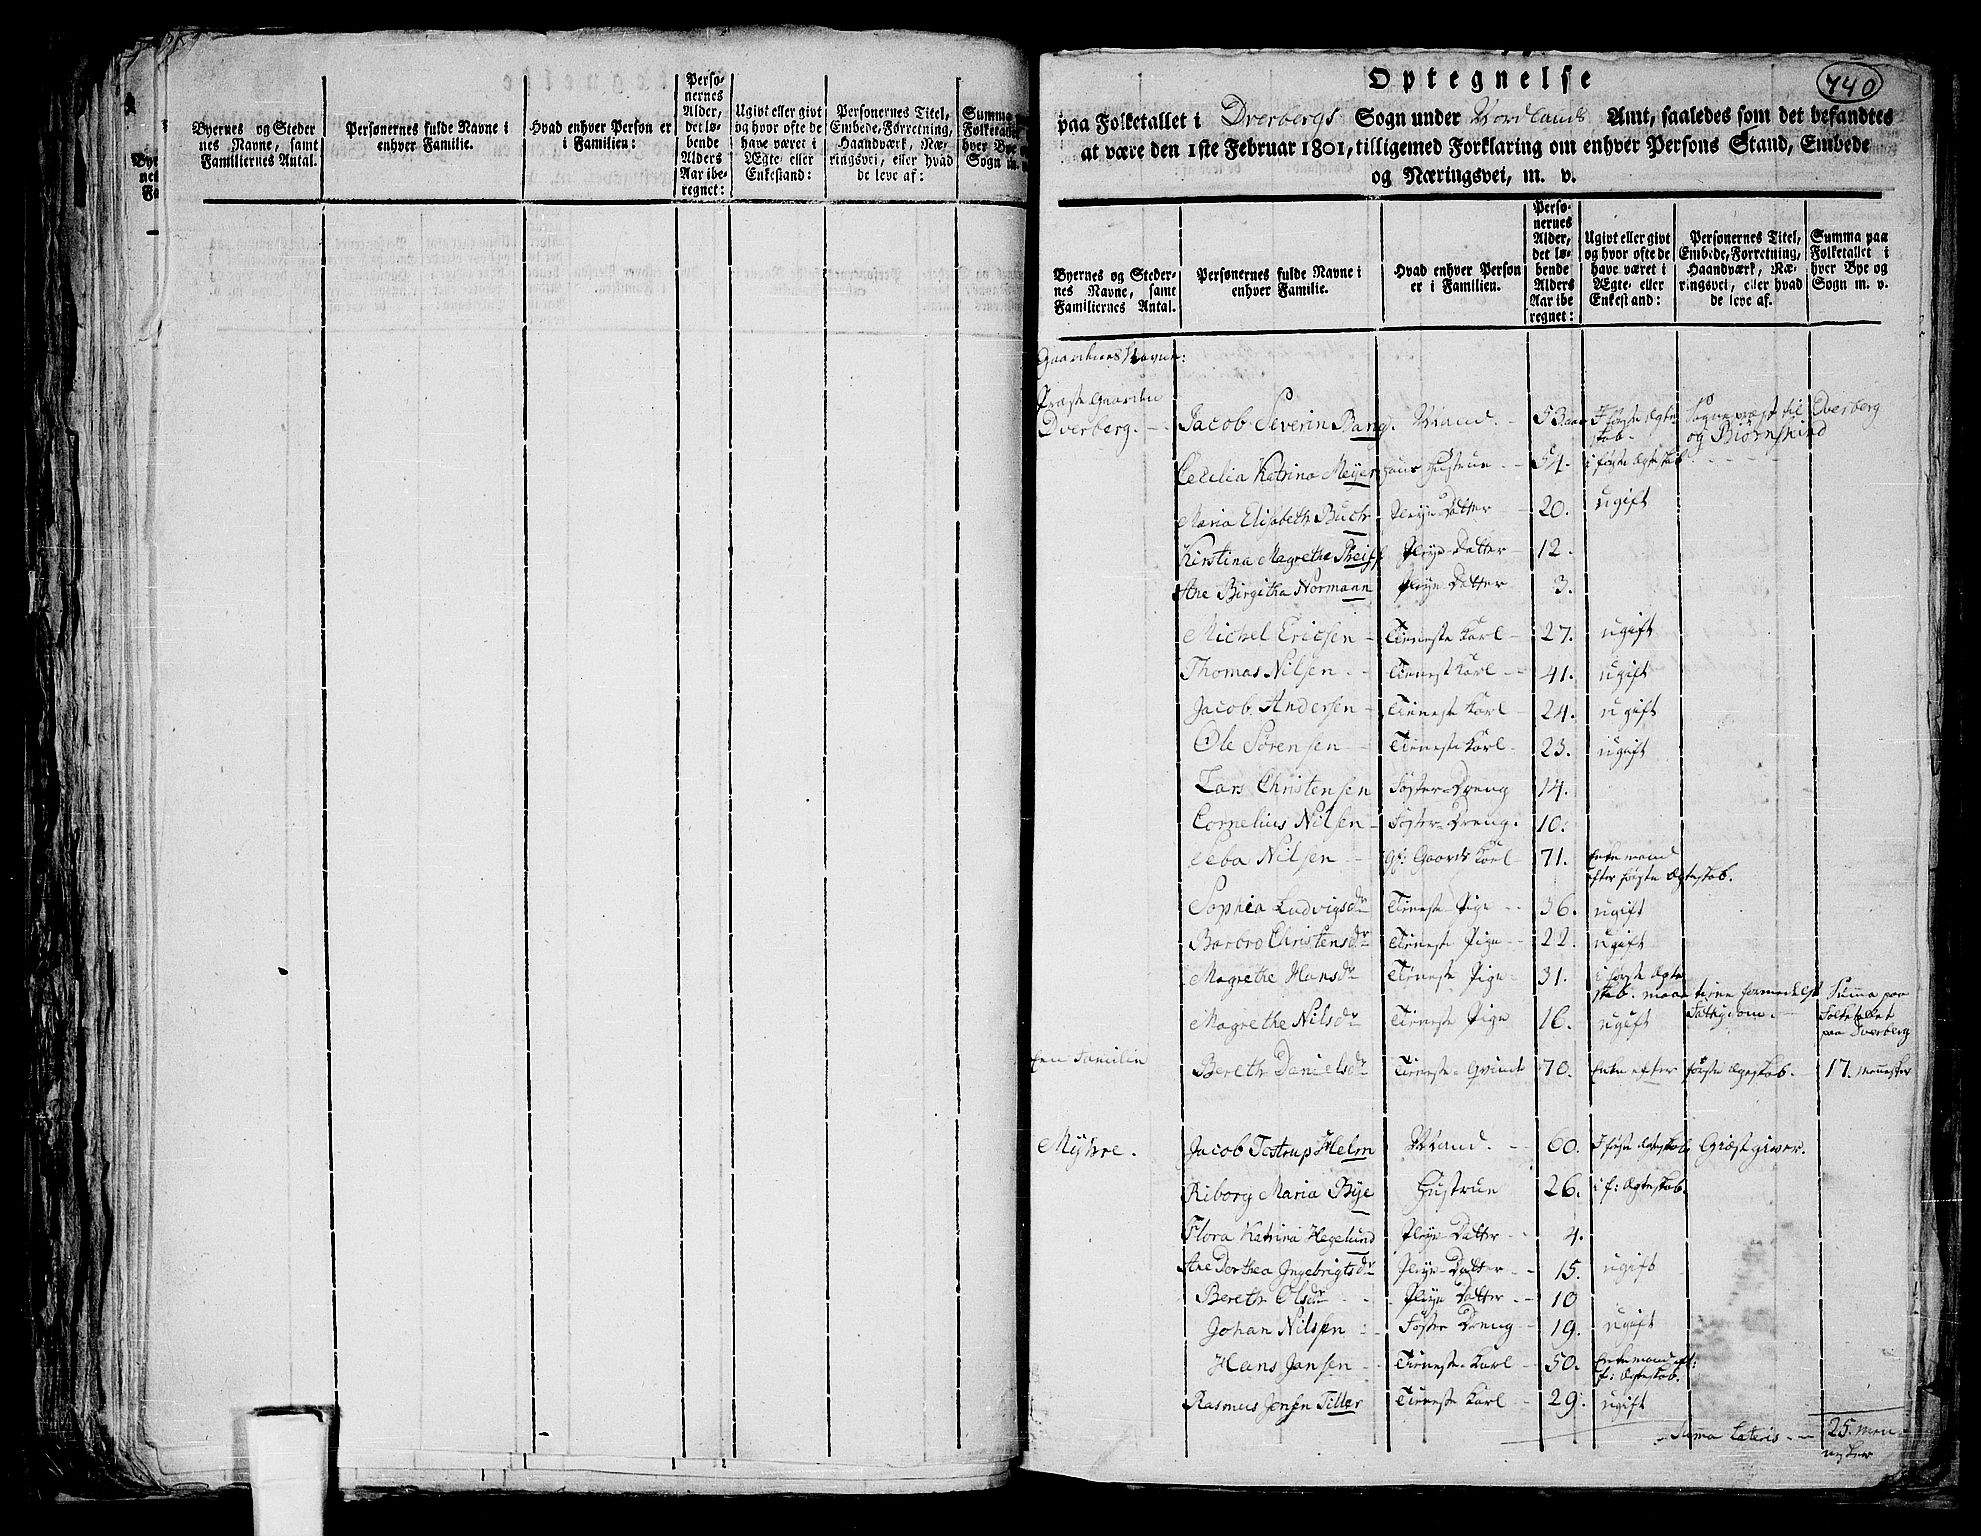 Byernes og Steder
nes Navne, samt
Familiernes Antal.
Personernes fulde Navne i
enhver Familie.
Hvad enhver Person er
i Familien:
Perso-
nernes
Alder,
det lø-
bende
Alders
Aar ibe-
regnet:
Ugivt eller givt
og hvor ofte de
have været i
Ægte- eller
Enkestand:
Personernes Titel,
Embede, Forretning,
Haandværk, Næ-
ringsvei, eller hvad
de leve af:
Summa
Folketallet
hver Bye
Sogn m.
740
Optegnelse
paa Folketallet i Dverbergs Sogn under Nordlands Amt, saaledes som det befandtes
at være den 1ste Februar 1801, tilligemed Forklaring om enhver Persons Stand, Embede
og Næringsvei, m. v.
Byernes og Steder-
nes Navne, samt
Familiernes Antal.
Personernes fulde Navne i
enhver Familie.
Hvad enhver Person
er i Familien.
Perso-
nernes
Alder,
det lø-
bende
Alders
Aar ibe
regnet:
Ugivt eller givt
og hvor ofte de
have været i
Ægte- eller
Enkestand:
Personernes Titel,
Embede, Forretning,
Haandværk, Næ-
ringsvei, eller hvad
de leve af.
Summa paa
Folketallet i
hver Bye og
Sogn m. v.
Gaardenes Navne:
Præste Gaarden
Dverberg. Jacob Severin Bang. Mand. 53 aar I første Ægte Sogneprest til Dverberg
skab. og Biørnskind
Cecilia Katrina Meyer hans Hustrue 54. i første Ægteskab
Maria Elisabeth Buch Pleye Datter 20. ugift
Kirstina Magrethe Pfeiff Pleye-Datter 12.
Ane Birgitha Normann Pleye-Datter 3.
Michel Ericsen Tieneste Karl 27. ugift
Thomas Nilsen Tienest Karl 41. ugift
Jacob Andersen Tieneste Karl 24. ugift
Ole Sørensen Tieneste Karl 23. ugift
Lars Christensen Foster-Dreng 14.
Cornelius Nilsen Foster-Dreng. 10.
Seba Nilsen gl: Gaards Karl 71. Enkemand
efter første Ægteskab.
Sophia Ludvigsdr Tieneste Pige 36. ugift
Barbro Christensdr Tieneste Pige 22. ugift
Magrethe Hansdr Tieneste Pige 31. i første Ægte
skab. maae tiene formedelst Summa paa
Magrethe Nilsdr Tieneste Pige 16. ugift Fattigdom. Folketallet
paa Dverberg
Een Familie Bereth Danielsdr Tieneste-Qvinde 70. Enke efter første Ægteskab. 17. Mennesker
Myhre. Jacob Testrup Helm Mand. 60. I første Ægteskab Giæstgiver.
Riborg Maria Bye Hustrue 26. i f: Ægteskab.
Flora Katrina Hegelund Pleye-Datter 4.
Ane Dorthea Jngebrigtsdr Pleye-Datter 15. ugift
Bereth Olsdr Pleye Datter 10
Johan Nilsen Foster Dreng 19. ugift
Hans Jansen Tieneste-Karl 50. Enkemand eft:
f: Ægteskab.
Rasmus Jensen Tiller Tieneste Karl 29. ugift
Suma Lateris 25. Men
nesker